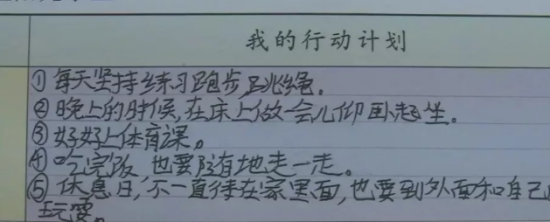 我的行动计划
①每天坚持练习跑步跳绳。
②晚上的时候,在床上做一会儿仰卧起坐。
③好好上体育课。
④吃完饭,也要随地走一走。
⑤休息日,不一直待在家里面,也要到外面和自己
玩耍。